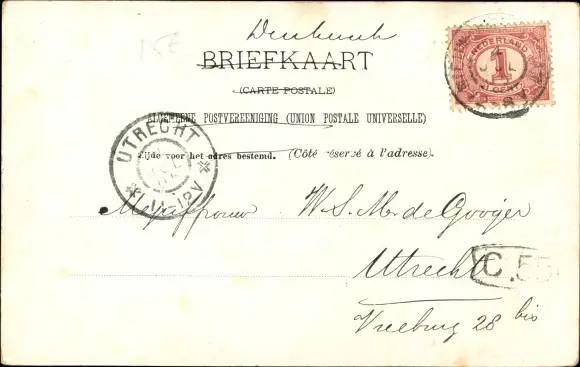 BRIEFKAART
(CARTE POSTALE)
ALGEMEENE POSTVEREENIGING (UNION POSTALE UNIVERSELLE)
Zijde voor het adres bestemd. (Côté réservé à l'adresse).
NEDERLAND
1
CENT
JUL
UTRECHT
Mejuffrouw W. S. M. de Gooijer
Utrecht
C.55
Vreeburg 28 bis